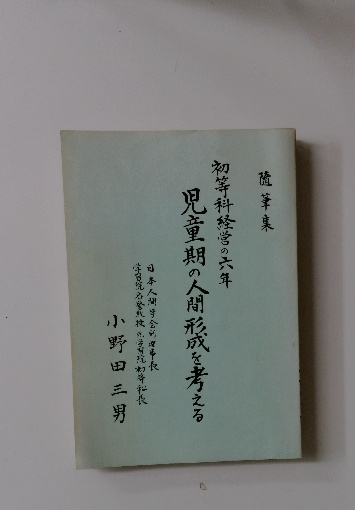 随筆集
初等科経営の六年
児童期の人間形成を考える
日本人間学会副理事長
学習院名誉教授 元学習院初等科長
小野田三男